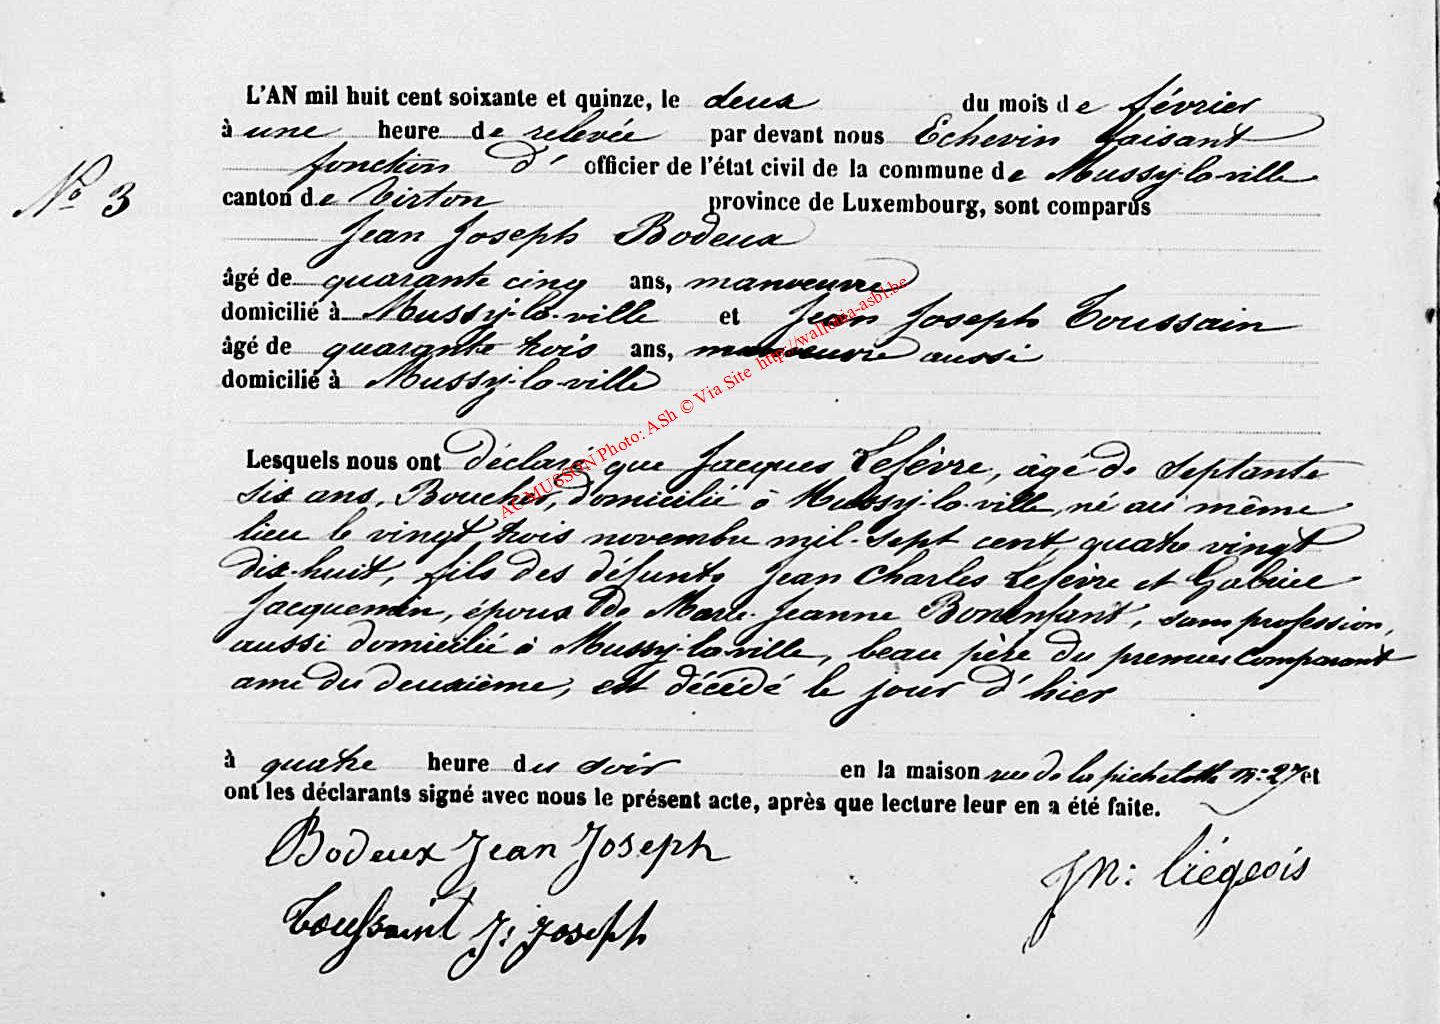 L'AN mil huit cent soixante et quinze, le deux du mois de février
à une heure de relevée par devant nous Echevin faisant
fonction d' officier de l'état civil de la commune de Mussy-la-ville
N° 3
canton de Virton province de Luxembourg, sont comparus
Jean Joseph Bodeux
âgé de quarante cinq ans, manoeuvre
domicilié à Mussy-la-ville et Jean Joseph Toussain
âgé de quarante trois ans, manoeuvre aussi
domicilié à Mussy-la-ville
Lesquels nous ont déclaré que Jacques Lefèvre, âgé de septante
six ans, Boucher, domicilié à Mussy-la-ville, né au même
lieu le vingt trois novembre mil-sept cent quatre vingt
dix-huit, fils des défunts Jean Charles Lefèvre et Gabriel
Jacquemin, époux de Marie-Jeanne Bonenfant, sans profession,
aussi domicilié à Mussy-la-ville, beau père du premier comparant
ami du deuxième, est décédé le jour d'hier
à quatre heure du soir en la maison rue de la pichelotte n° 27 et
ont les déclarants signé avec nous le présent acte, après que lecture leur en a été faite.
Bodeux Jean Joseph
JN: Liégeois
Toussaint J; Joseph
AC MUSSON Photo: ASh © Via Site http://wallonia-asbl.be